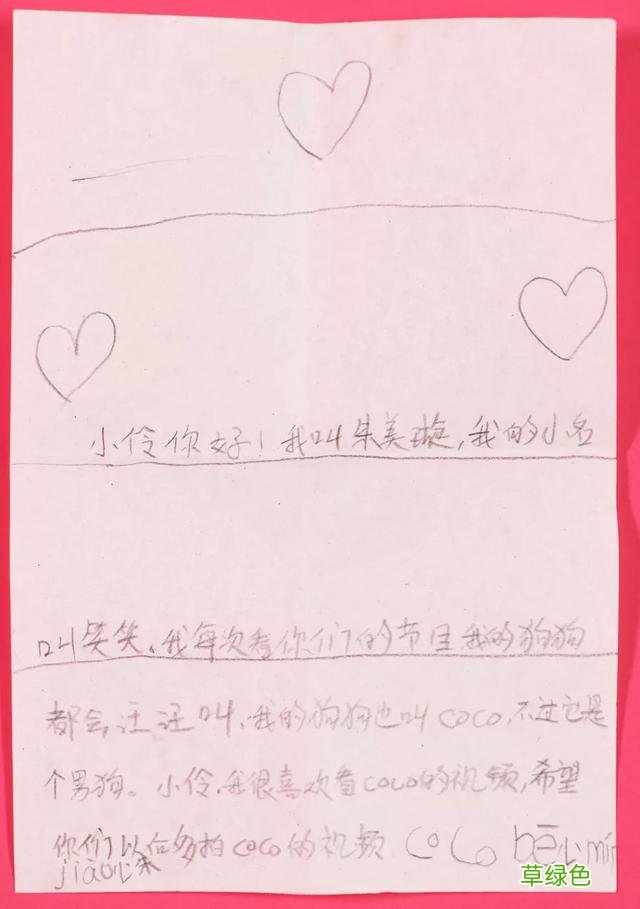 小伶你好！我叫朱美璇，我的小名
叫笑笑、我每次看你们的节目我的狗狗
都会汪汪叫、我的狗狗也叫coco，不过它是
个男狗。小伶，我很喜欢看coco的视频，希望
你们以后多拍coco的视频 CoCo bē心min
jiāo心来
草绿色